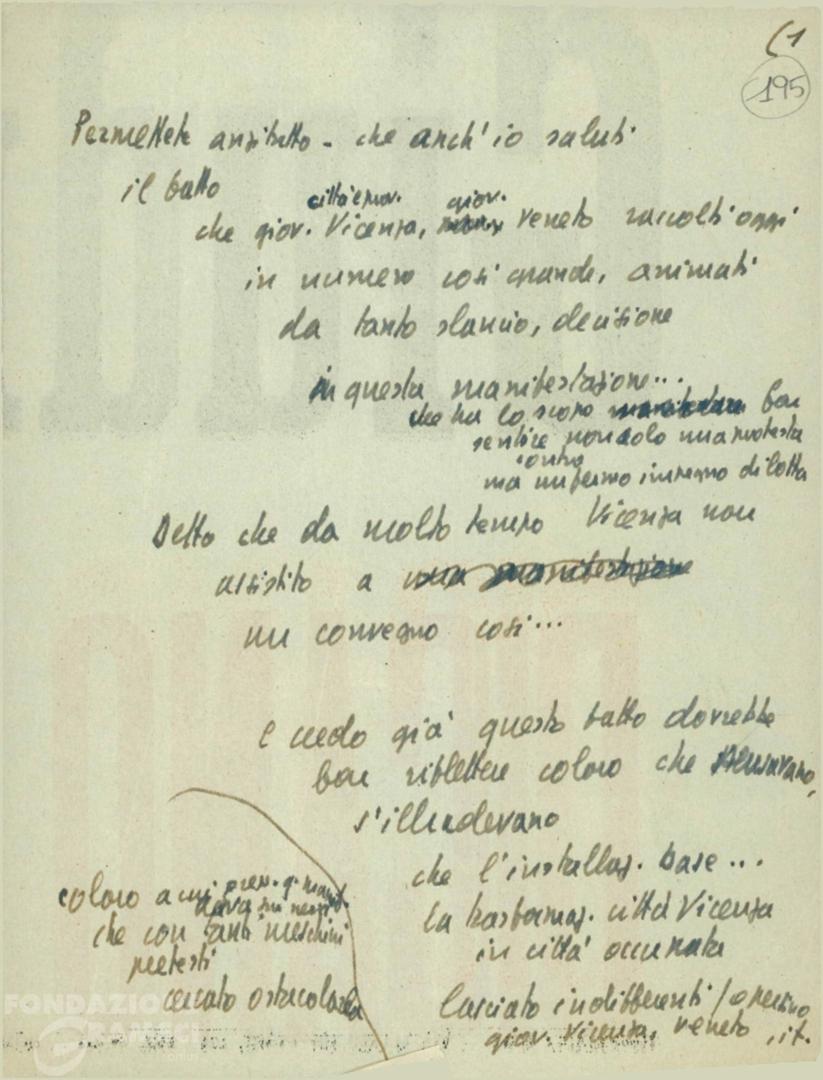 (1
195
Permettete anzitutto - che anch'io saluti
il fatto
città e prov. giov.
che giov. Vicenza, veneto raccolti oggi
in numero così grande, animati
da tanto slancio, decisione
in questa manifestazione...
che ha lo scopo far
sentire non solo una protesta
contro
ma un fermo impegno di lotta
Detto che da molto tempo Vicenza non
assistito a una manifestazione
un convegno così...
e credo già questo fatto dovrebbe
far riflettere coloro che pensavano,
s'illudevano
che l'installaz. base...
la trasformaz. città Vicenza
in città occupata
lasciato indifferenti / 
giov. Vicenza, veneto, it.
coloro a cui prep. q. manif.
dava sui nervi
che con tanti meschini
pretesti
cercato ostacolarla
FONDAZIONE
GRAMSCI